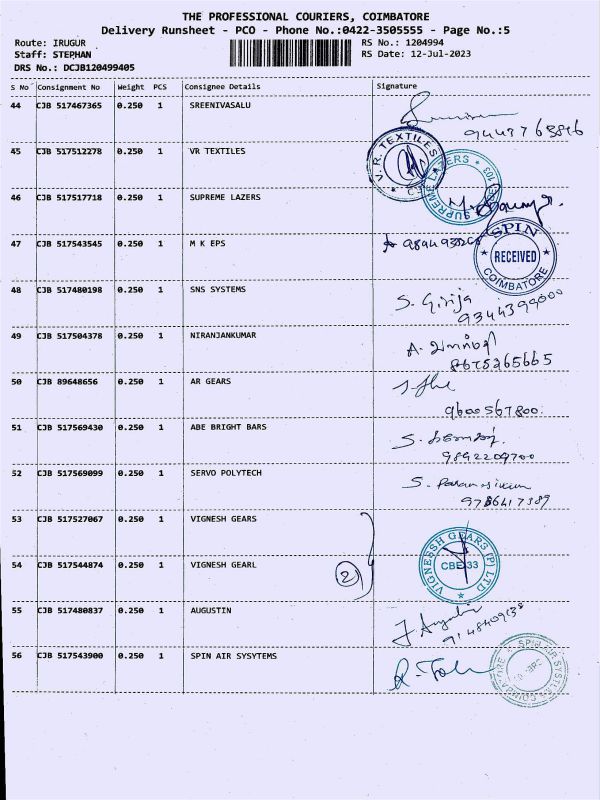 THE PROFESSIONAL COURIERS, COIMBATORE
Delivery Runsheet - PCO - Phone No.:0422-3505555 - Page No.:5
Route: IRUGUR RS No.: 1204994
Staff: STEPHAN RS Date: 12-Jul-2023
DRS No.: DCJB120499405
S No Consignment No Weight PCS Consignee Details Signature
44 CJB 517467365 0.250 1 SREENIVASALU
45 CJB 517512278 0.250 1 VR TEXTILES
V.R. TEXTILES
46 CJB 517517718 0.250 1 SUPREME LAZERS
SUPREME LAZERS
47 CJB 517543545 0.250 1 M K EPS
SPIN RECEIVED COIMBATORE
48 CJB 517480198 0.250 1 SNS SYSTEMS S. Girija
9344399000
49 CJB 517504378 0.250 1 NIRANJANKUMAR
8675265665
50 CJB 89648656 0.250 1 AR GEARS
9600567800
51 CJB 517569430 0.250 1 ABE BRIGHT BARS
9892209700
52 CJB 517569099 0.250 1 SERVO POLYTECH
9786417389
53 CJB 517527067 0.250 1 VIGNESH GEARS
VIGNESSH GEARS (P) LTD CBE-33
54 CJB 517544874 0.250 1 VIGNESH GEARL 2
55 CJB 517480837 0.250 1 AUGUSTIN
56 CJB 517543900 0.250 1 SPIN AIR SYSYTEMS
SPIN AIR SYSTEMS